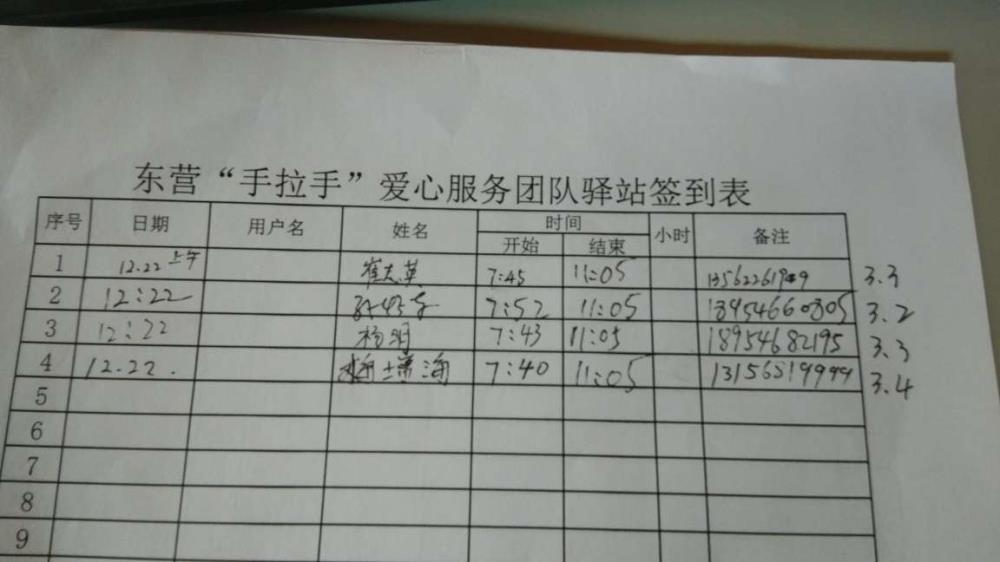 东营“手拉手”爱心服务团队驿站签到表
序号 日期 用户名 姓名 时间 小时 备注
开始 结束
1 12.22 上午 崔志英 7:45 11:05 3.3
2 12:22 7:52 11:05 18954660805 3.2
3 12:22 杨明 7:43 11:05 18954682195 3.3
4 12.22. 7:40 11:05 13156819999 3.4
5
6
7
8
9